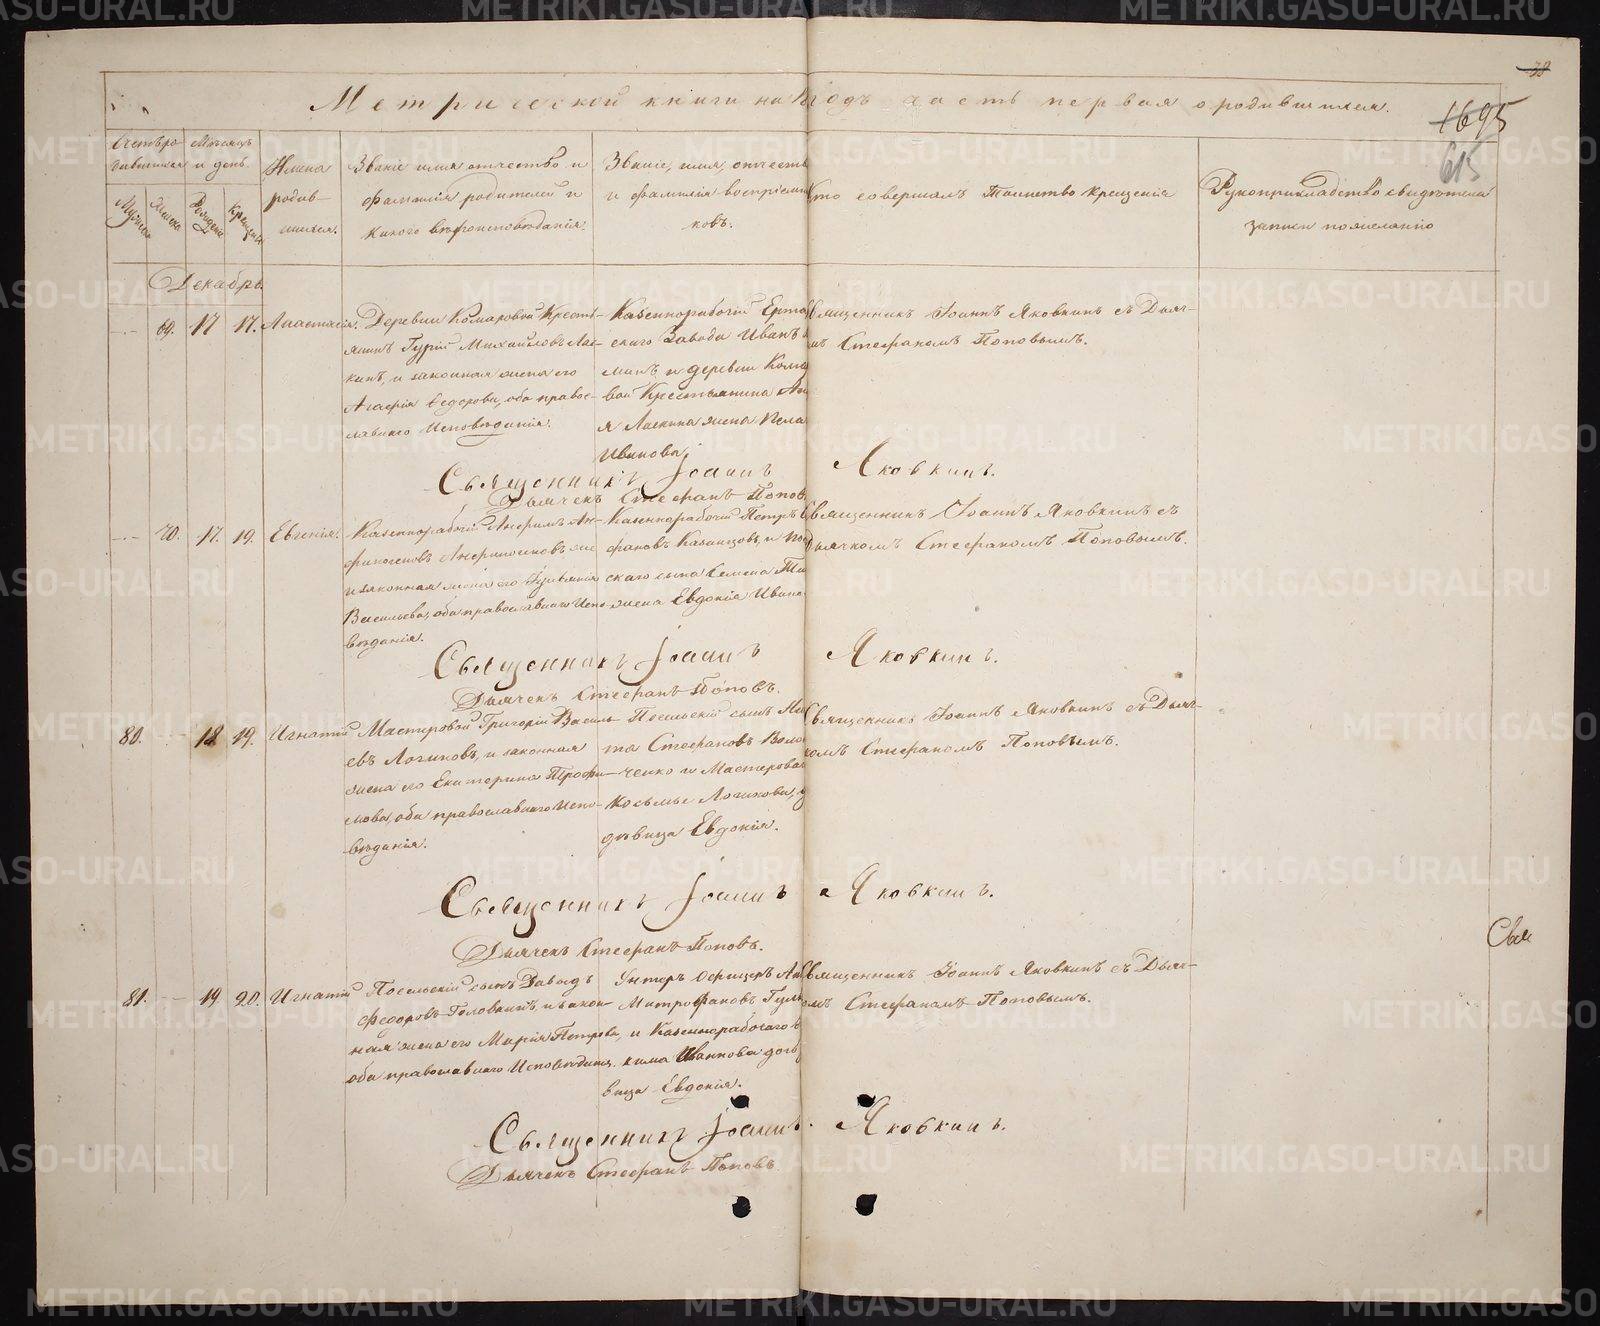 38
1695
615
Метрической книги на годъ часть первая о родившихся.
Счетъ ро-
дившихся
Мѣсяцъ
и день.
Имена
родив-
шихся.
Званіе имя отчество и
фамилія родителей и
какого вѣроисповѣданія.
Званіе, имя, отчеств
и фамилія воспріемни
ковъ.
Кто совершалъ Таинство Крещенія
Рукоприкладство свидѣтелей
записи по желанію
Мужска
Женска
Рожденія
Крещенія
Декабрь
69. 17 17. Анастасія.
Деревни Комаровой Кресть-
янинъ Гурій Михайловъ Лас-
кинъ, и законная жена его
Агафія Ѳедорова, оба правос-
лавнаго Исповѣданія.
Казеннорабочій
скаго Завода Иванъ
и деревни Кома
вой Крестьянина
я Ласкина жена Пела
Иванова.
Священникъ Іоаннъ Яковкинъ съ Дьяч-
мъ Стефаномъ Поповымъ.
Священникъ Іоаннъ Яковкинъ.
Дьячекъ Стефанъ Поповъ
70. 17. 19. Евгенія.
Казеннорабочій
и законная жена его Іуліанія
Васильева, оба православнаго Испо-
вѣданія.
Казеннорабочій Петръ
фановъ Казанцовъ, и
скаго сына Семена
жена Евдокія Ивано
Священникъ Іоаннъ Яковкинъ съ
Дьячкомъ Стефаномъ Поповымъ.
Священникъ Іоаннъ Яковкинъ.
Дьячекъ Стефанъ Поповъ.
80. 18 19. Игнатій
Мастеровой Григорій Василь-
евъ Логиновъ, и законная
жена его Екатерина Трофи-
мова, оба православнаго Испо-
вѣданія.
Посельскій сынъ Ни
та Стефановъ
ченко и Мастероваг
Косьмы Логинова,
дѣвица Евдокія.
Священникъ Іоаннъ Яковкинъ съ Дьяч-
комъ Стефаномъ Поповымъ.
Священникъ Іоаннъ Яковкинъ.
Дьячекъ Стефанъ Поповъ.
81. 19 20. Игнатій
Посельскій сынъ Давыдъ
Федоровъ Головкинъ, и закон-
ная жена его Марія Петрова,
оба православнаго Исповѣданія.
Унтеръ Офицеръ
Митрофановъ
и Казеннорабочаго
Иванова дочь
вица Евдокія.
Священникъ Іоаннъ Яковкинъ съ Дьяч-
омъ Стефаномъ Поповымъ.
Священникъ Іоаннъ Яковкинъ.
Дьячекъ Стефанъ Поповъ
Свя
METRIKI.GASO-URAL.RU